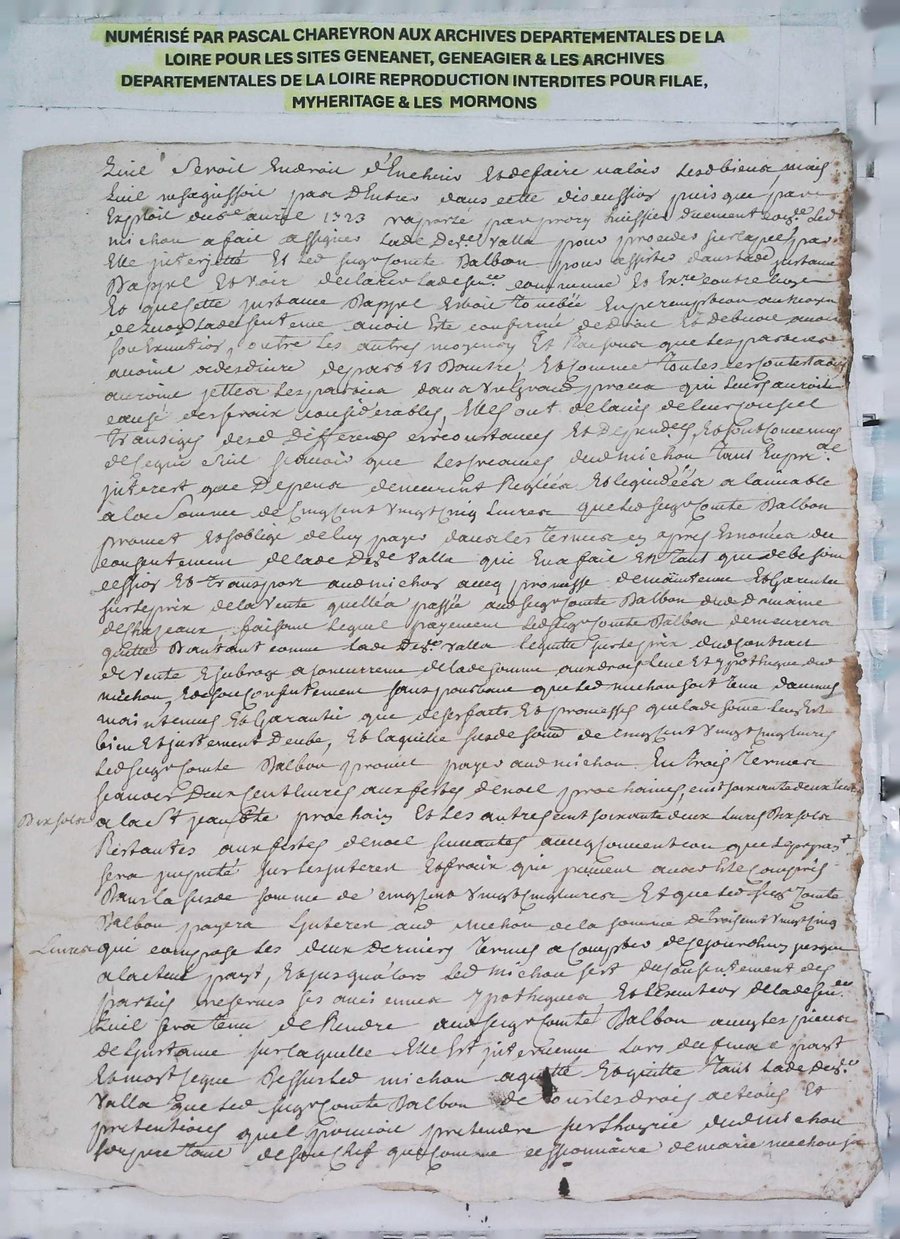 NUMÉRISÉ PAR PASCAL CHAREYRON AUX ARCHIVES DEPARTEMENTALES DE LA
LOIRE POUR LES SITES GENEANET, GENEAGIER & LES ARCHIVES
DEPARTEMENTALES DE LA LOIRE REPRODUCTION INTERDITES POUR FILAE,
MYHERITAGE & LES MORMONS
quil seroit endroit d'encherir et de faire valoir lesd biens mais
quil nesagissoit pas d'entrer dans cette discussion puis que par
exploit du avril 1723 huissier duement
michon a fait assigner lade De Valla pour proceder sur lapel par
elle interjetté et led seigr Comte Dalbon pour assister dans lade instance
Dappel et voir declarer lade commune et contre luy
et que cette instance Dappel estoit tombée en peremption au moyen
de quoy lade sentence avoit esté confirmée de droit et debvoit avoir
son execution, outre les autres moyens et raisons que les parties
avoint a desduire de part et Dautre, et comme toutes ces contestations
auroint jetté les parties dans un grand procés qui leurs auroit
causé des fraix considerables, elles ont de lavis de leur conseil
transigé desd differends circonstances et dependes, et sont convenues
de ce qui suit scavoir que les creances dud michon tant en pral
interest que depens demeurent reglées et liquidées a lamiable
a la somme de cinq cent vingt cinq livres que led seigr Comte Dalbon
promet et soblige de luy payer dans les termes cy apres enoncés du
consentement de lade De Valla qui en a fait en tant que de besoin
cession et transport aud michon avec promesse de maintenue et garentie
sur le prix de la vente quelle a passée aud seigr Comte Dalbon du domaine
de faisant lequel payement led seigr Comte Dalbon demeurera
quitte Dautant comme lade De Valla le quitte sur le prix dud contract
de vente et subrogé a concurrence de lade somme aux droits lieu et ypotheque dud
michon, et de son consentement sans pourtant que led michon soit tenu daucune
maintenue et garantie que de ses faits et promesses que lade somme leur est
bien et justement deube, et laquelle susde somme de cinq cent vingt cinq livres
led seigr Comte Dalbon promet payer aud michon en trois termes
scavoir deux cent livres aux festes de noel prochaines, cent soixante deux livres
Dix sols a la St jean prochain et les autres cent soixante deux livres Dix sols
restantes aux festes de noel suivantes avec convention que
sera imputé sur les interest et fraix qui peuvent avoir esté compris
Dans la susde somme de cinq cent vingt cinq livres et que led seigr Comte
Dalbon payera linterest aud michon de la somme de trois cent vingt cinq
Livres qui compose les deux derniers termes a compter de cejourdhuy jusques
a lactuel payt, et jusqu'alors led michon sest du consentement des
parties reservé ses anciennes ypotheques et lexecution de lade
quil sera tenu de rendre aud seigr Comte Dalbon avec les pieces
de linstance sur laquelle elle est intervenue lors du final payt
et led michon a quitté et quitte tant lade De
Valla que led seigr Comte Dalbon de tous les droits actions et
pretentions quel pouvoit pretendre sur dud michon
son pere tant de son chef que comme cessionnaire de marie michon sa